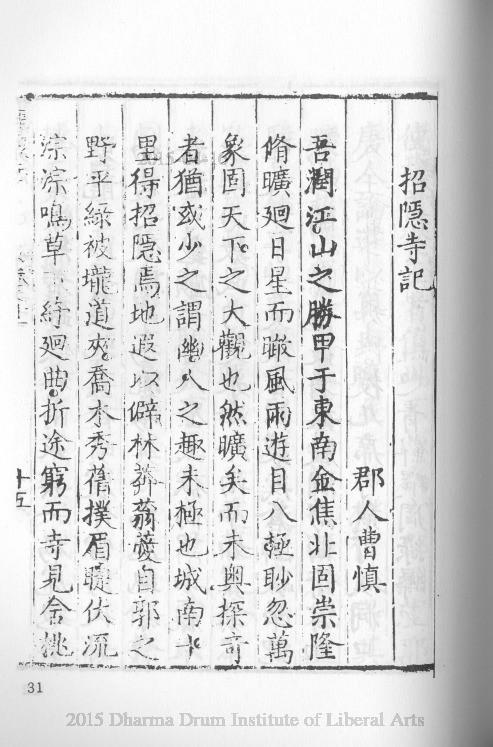 招隱寺記
郡人曹慎
吾潤江山之勝甲于東南金焦北固崇隆
脩曠廻日星而噉風雨遊目八極眇忽萬
象固天下之大觀也然曠矣而未奧探奇
者猶或少之謂幽人之趣未極也城南十
里得招隱焉地遐以僻林莽蓊薆自郭之
野平綠被壠道夾喬木秀蒨撲眉睫伏流
淙淙鳴草下紆廻曲折途窮而寺見舍挑
十五
31
2015 Dharma Drum Institute of Liberal Arts